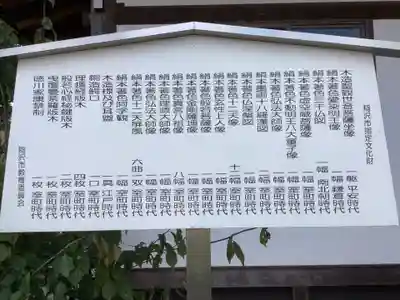 稲沢市指定文化財
木造聖観世音菩薩坐像 一躯 平安時代
絹本著色愛染明王像 一幅 鎌倉時代
絹本著色三千仏図 三幅 南北朝時代
絹本著色不動明王八大童子像 一幅 室町時代
絹本著色虚空蔵菩薩像 一幅 室町時代
絹本著色弘法大師像 一幅 室町時代
絹本墨画十八羅漢図 一幅 室町時代
絹本著色仏涅槃図 一幅 室町時代
絹本著色十二天像 十二幅 室町時代
絹本著色玄性上人像 一幅 室町時代
絹本著色般若菩薩像 一幅 室町時代
絹本著色金剛薩埵像 一幅 室町時代
絹本著色真言八祖像 八幅 室町時代
絹本著色理源大師像 一幅 室町時代
絹本著色弘法大師像 一幅 室町時代
絹本著色十二天屏風 六曲一双 室町時代
絹本著色阿字観 一幅 室町時代
木造標及び印 一具 江戸時代
銅造鰐口 一口 室町時代
理趣経版木 四枚 室町時代
般若心経秘鍵版木 二枚 室町時代
曳覆曼荼羅版木 一枚 室町時代
徳川家康禁制 一枚 室町時代
稲沢市教育委員会